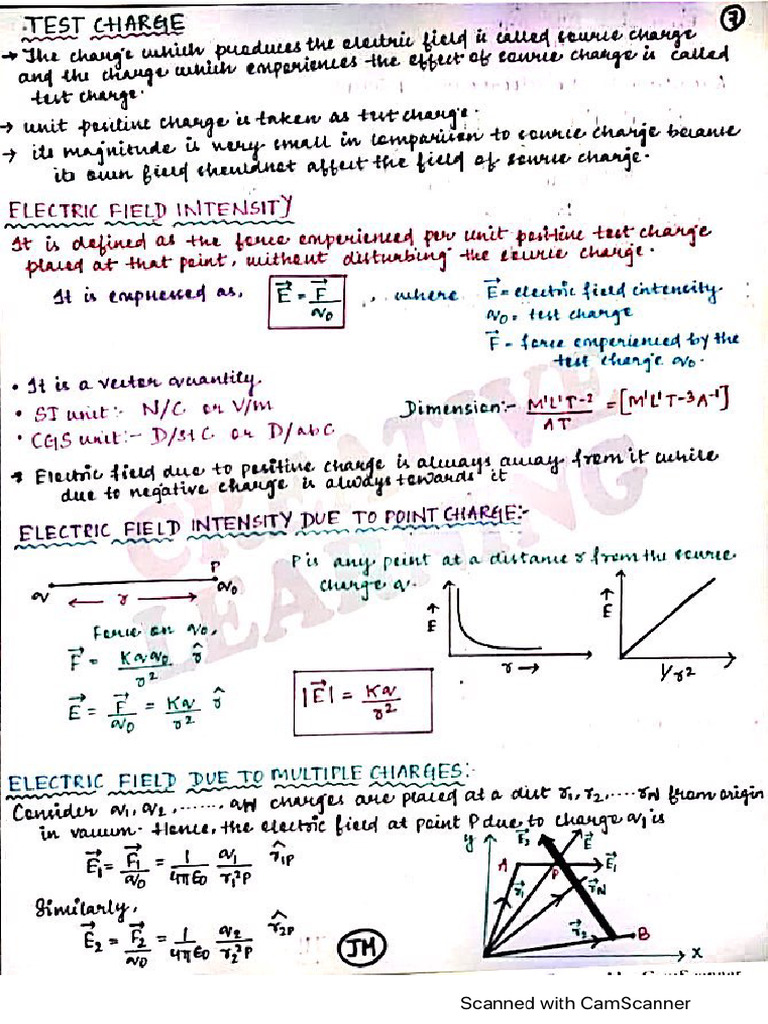 7
TEST CHARGE
→ The charge which produces the electric field is called source charge
and the charge which experiences the effect of source charge is called
test charge.
→ unit positive charge is taken as test charge.
→ its magnitude is very small in comparison to source charge because
its own field should not affect the field of source charge.
ELECTRIC FIELD INTENSITY
It is defined as the force experienced per unit positive test charge
placed at that point, without disturbing the source charge.
It is expressed as, E⃗ = F⃗/q0 , where E⃗ = electric field intensity
q0 = test charge
F⃗ - force experienced by the
test charge q0.
• It is a vector quantity.
• SI unit:- N/C or V/m
Dimension:- M¹L¹T⁻²/AT = [M¹L¹T⁻³A⁻¹]
• CGS unit:- D/stC or D/abC
* Electric field due to positive charge is always away from it while
due to negative charge is always towards it
ELECTRIC FIELD INTENSITY DUE TO POINT CHARGE:-
P is any point at a distance r from the source
charge q.
q ← r → P q0
Force on q0,
F⃗ = Kqq0/r² r̂
E⃗ = F⃗/q0 = Kq/r² r̂
|E⃗| = Kq/r²
↑ E r →
↑ E 1/r²
ELECTRIC FIELD DUE TO MULTIPLE CHARGES:-
Consider q1, q2, ......, qN charges are placed at a dist r1, r2, .... rN from origin
in vacuum. Hence, the electric field at point P due to charge q1 is
E⃗1 = F⃗1/q0 = 1/4πε0 q1/r²1P r̂1P
Similarly,
E⃗2 = F⃗2/q0 = 1/4πε0 q2/r²2P r̂2P
y E⃗2 E⃗
A P E⃗1
r⃗1 r⃗N
r⃗2 B
x
JM
CREATIVE
LEARNING
Scanned with CamScanner